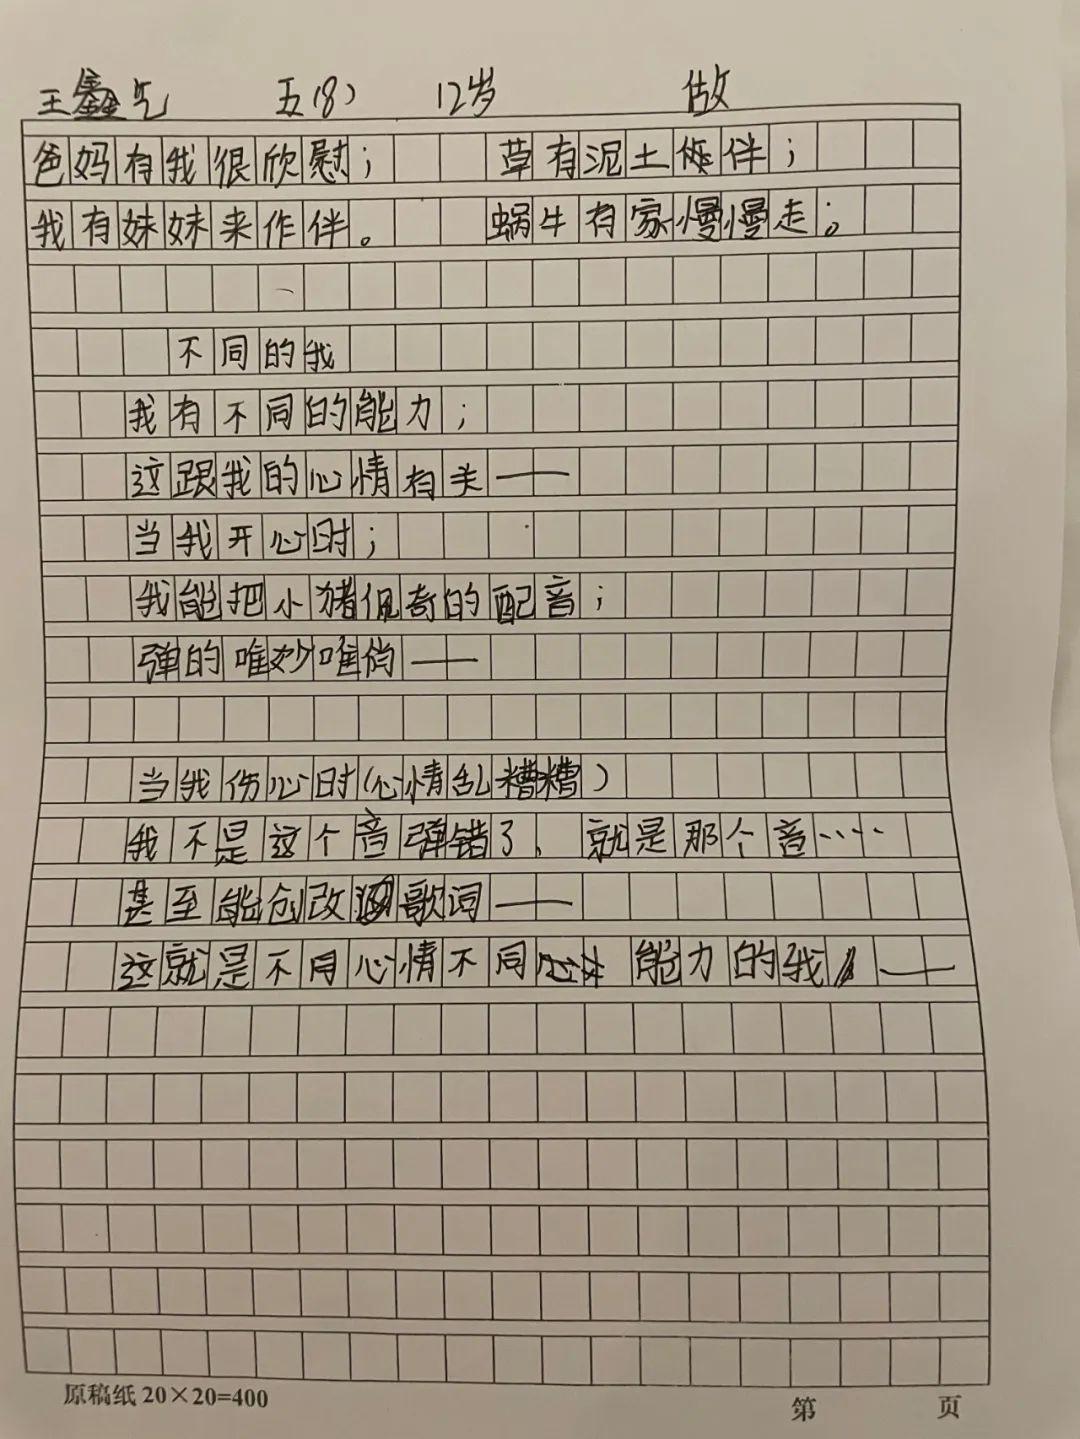 王鑫 五(8) 12岁 做
爸妈有我很欣慰; 草有泥土做伴;
我有妹妹来作伴。 蜗牛有家慢慢走;
不同的我
我有不同的能力;
这跟我的心情有关——
当我开心时;
我能把小猪佩奇的配音;
弹的唯妙唯俏——
当我伤心时(心情乱糟糟)
我不是这个音弹错了、就是那个音……
甚至能创改歌词——
这就是不同心情不同 能力的我——
原稿纸20×20=400 第 页